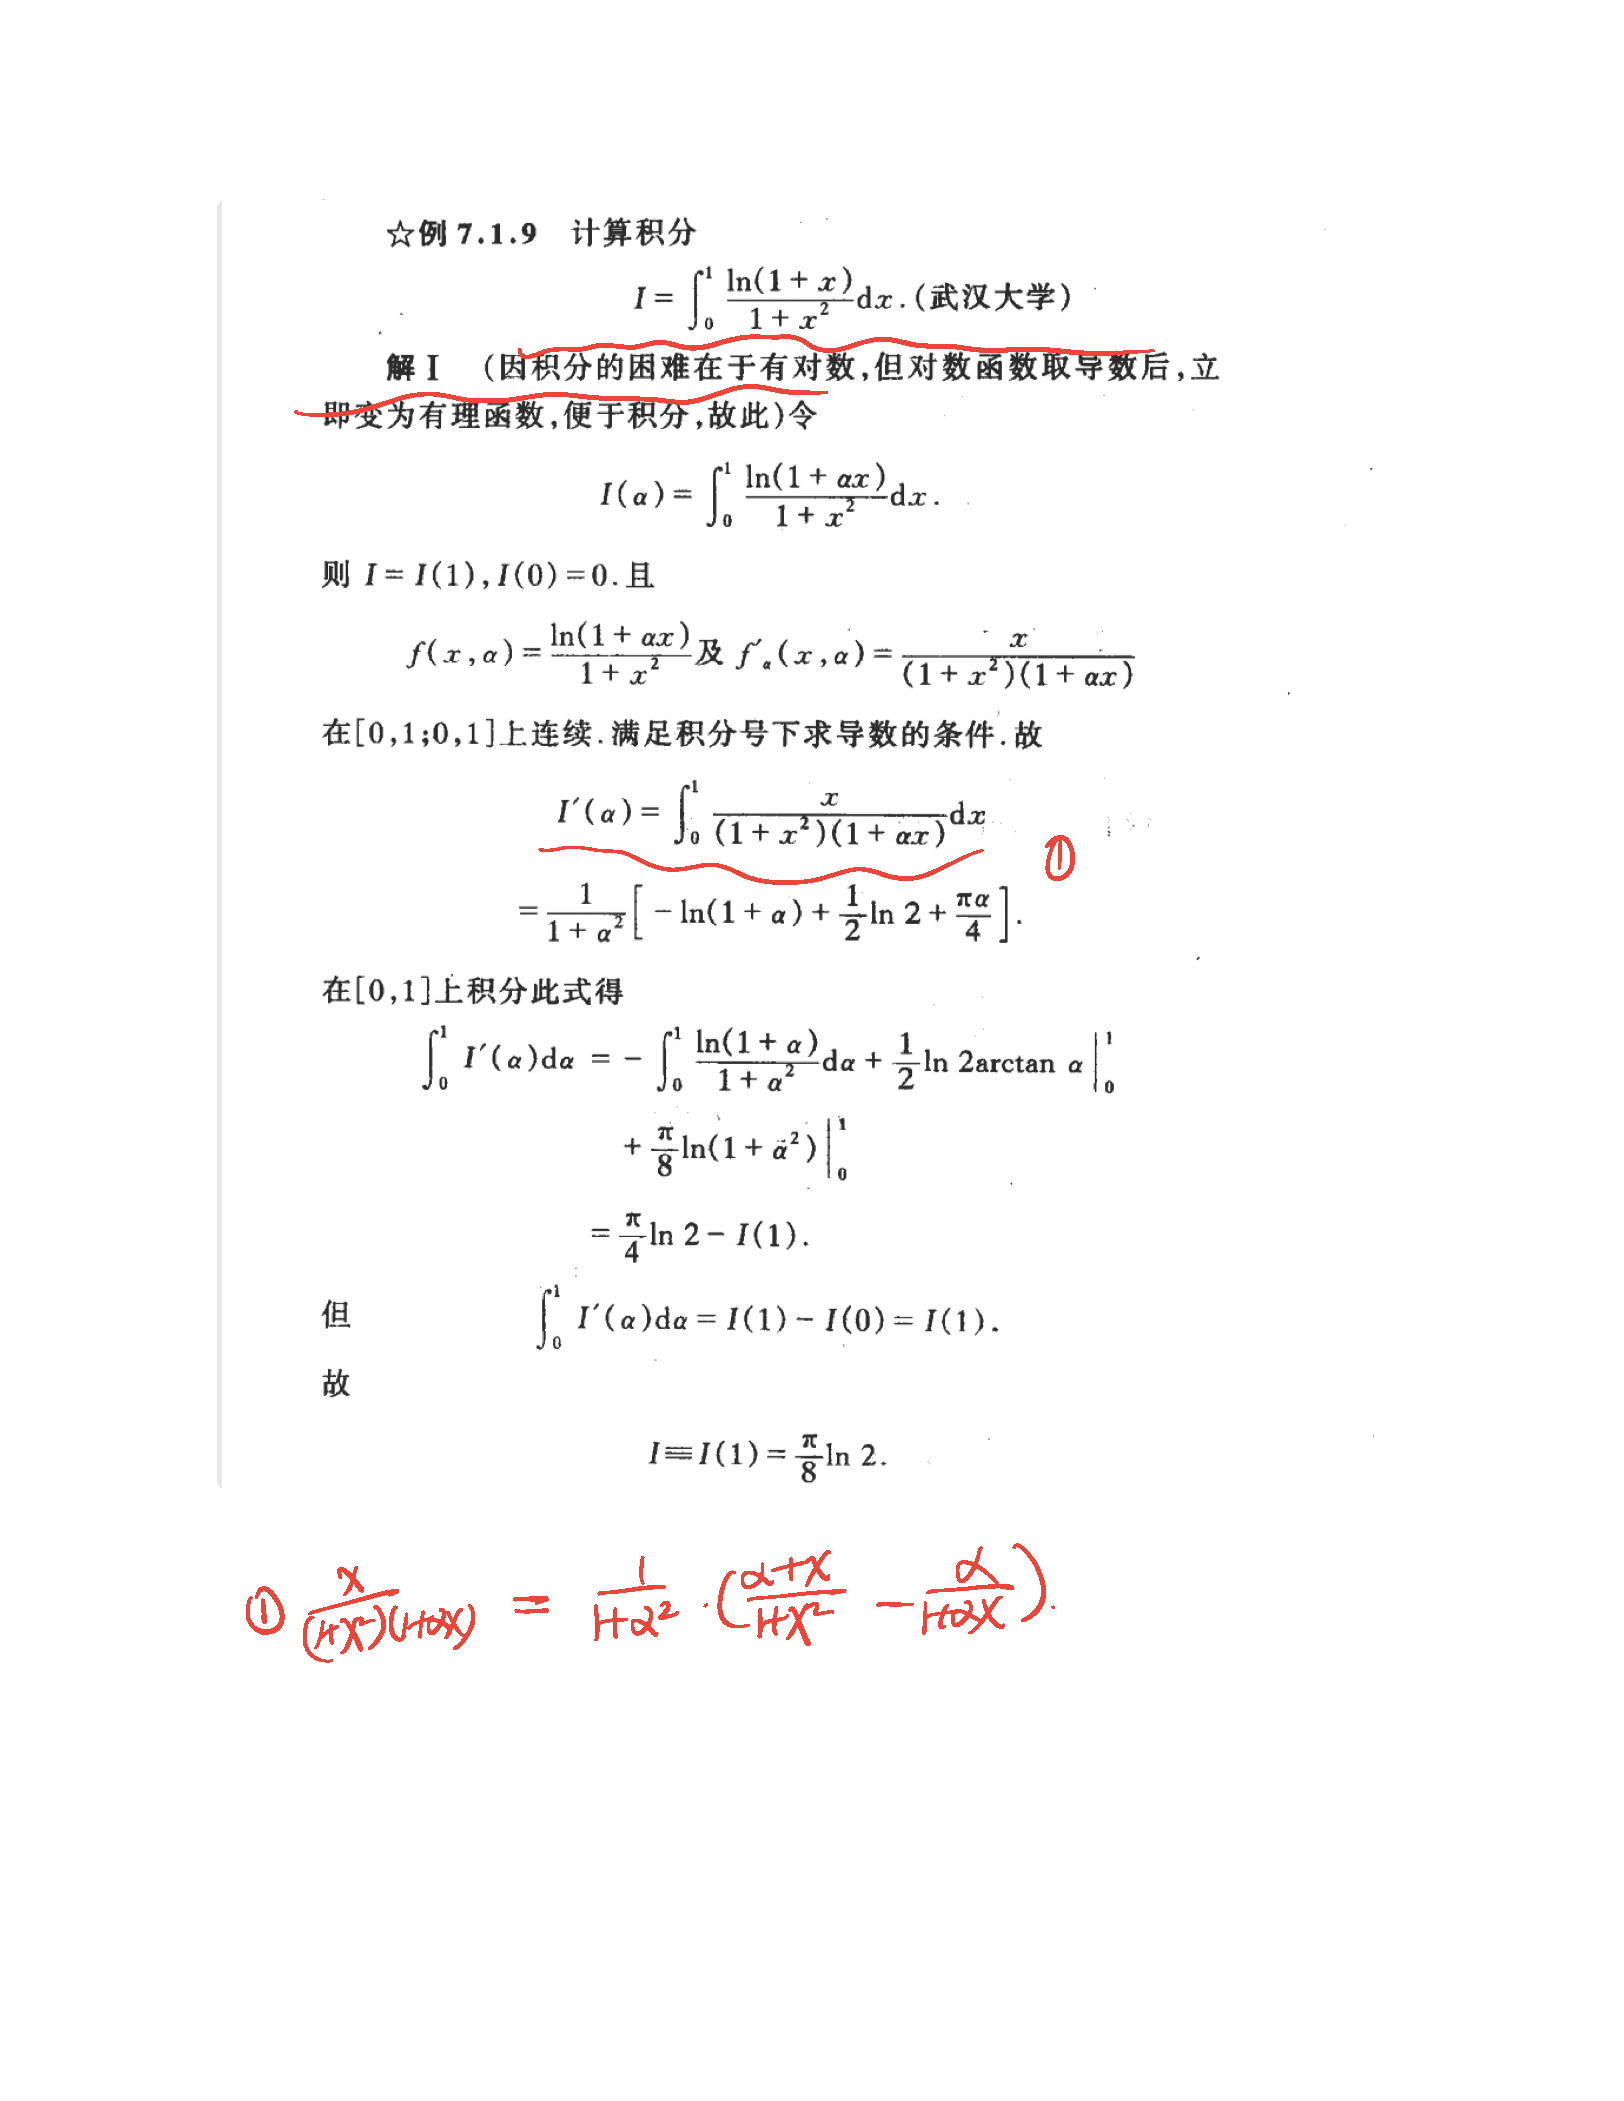 ☆例 7.1.9 计算积分
I = ∫₀¹ ln(1 + x)/(1 + x²) dx.(武汉大学)
解 I (因积分的困难在于有对数,但对数函数取导数后,立
即变为有理函数,便于积分,故此)令
I(α) = ∫₀¹ ln(1 + αx)/(1 + x²) dx.
则 I = I(1), I(0) = 0. 且
f(x,α) = ln(1 + αx)/(1 + x²) 及 f′α(x,α) = x/((1 + x²)(1 + αx))
在[0,1;0,1]上连续.满足积分号下求导数的条件.故
I′(α) = ∫₀¹ x/((1 + x²)(1 + αx)) dx ①
= 1/(1 + α²) [ - ln(1 + α) + 1/2 ln 2 + πα/4 ].
在[0,1]上积分此式得
∫₀¹ I′(α)dα = - ∫₀¹ ln(1 + α)/(1 + α²) dα + 1/2 ln 2arctan α |₀¹
+ π/8 ln(1 + α²) |₀¹
= π/4 ln 2 - I(1).
但 ∫₀¹ I′(α)dα = I(1) - I(0) = I(1).
故
I ≡ I(1) = π/8 ln 2.
① x/((1+x²)(1+αx)) = 1/(1+α²) · ((α+x)/(1+x²) - α/(1+αx)).